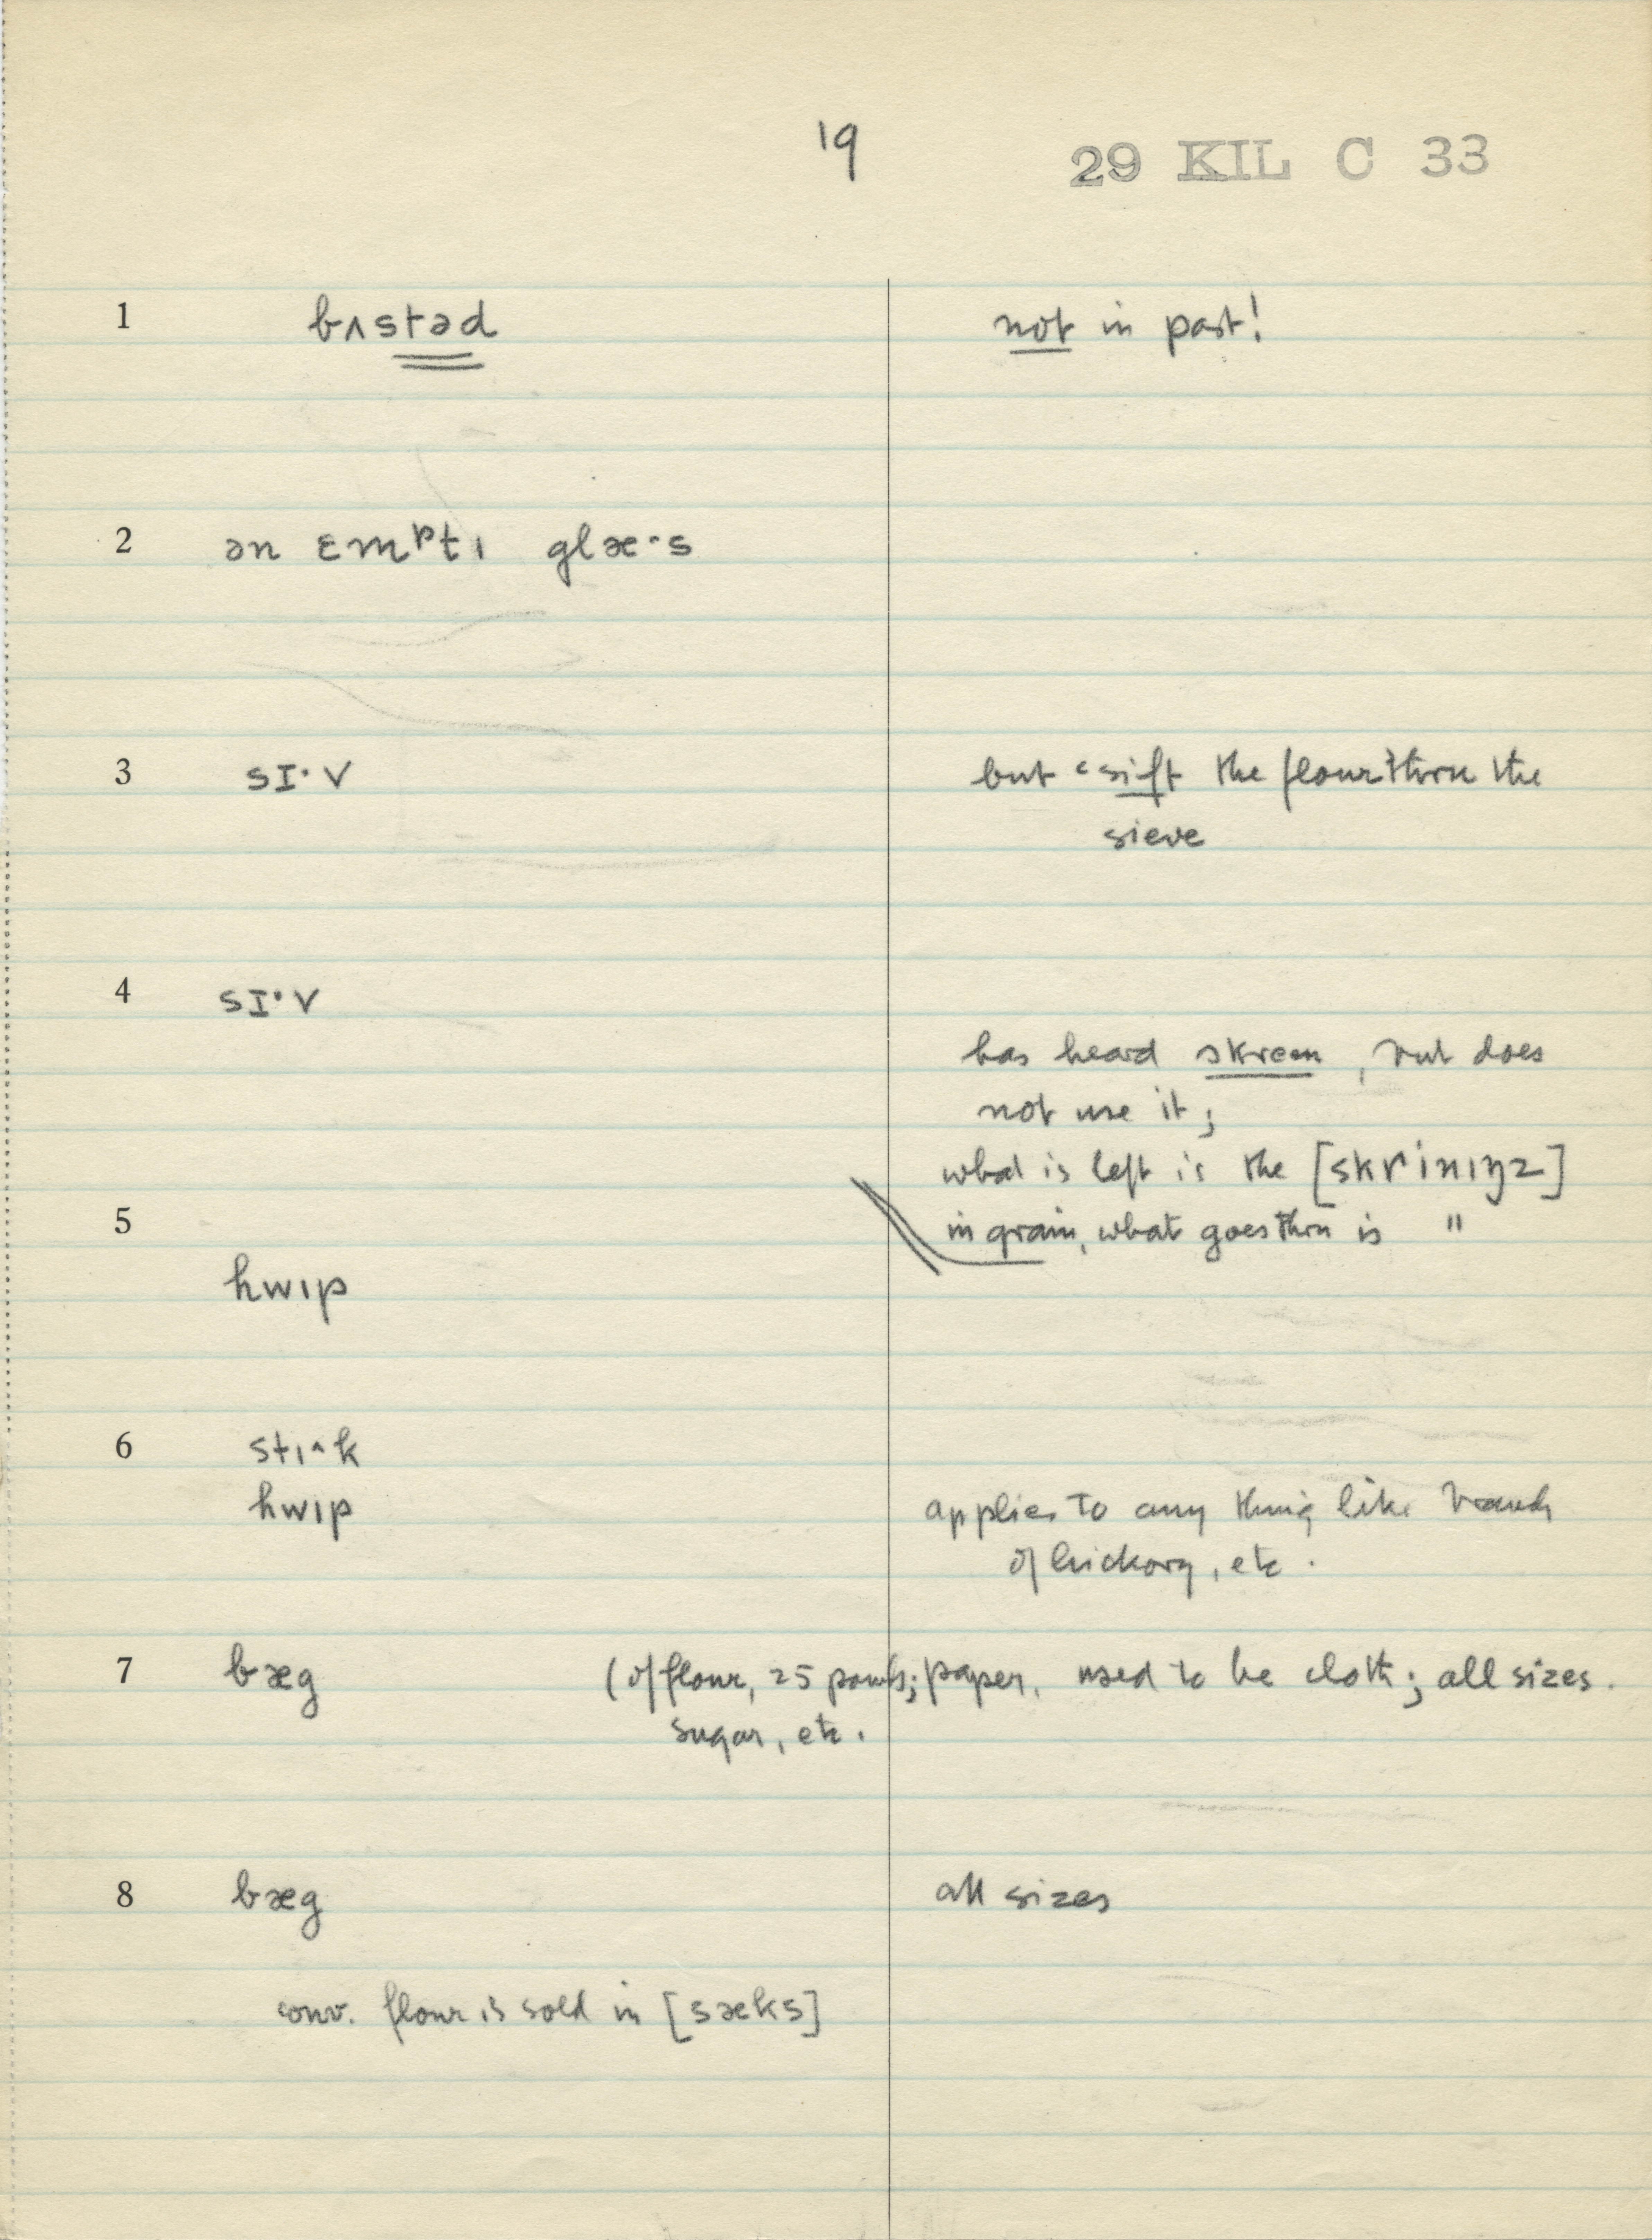 19
29 KIL C 33
1 bʌstəd not in past!
2 ən ɛmᵖtɪ glæ·s
3 sɪ·v but "sift the flour" thru the
sieve
4 sɪ·v
has heard skreen, but does
not use it;
what is left is the [skrinɪŋz]
5 in grain, what goes thru is "
hwɪp
6 stɪ^k
hwɪp applies to any thing like branch
of hickory, etc.
7 bæg (of flour, 25 pounds; paper, used to be cloth; all sizes.
sugar, etc.
8 bæg all sizes
conv. flour is sold in [sæks]